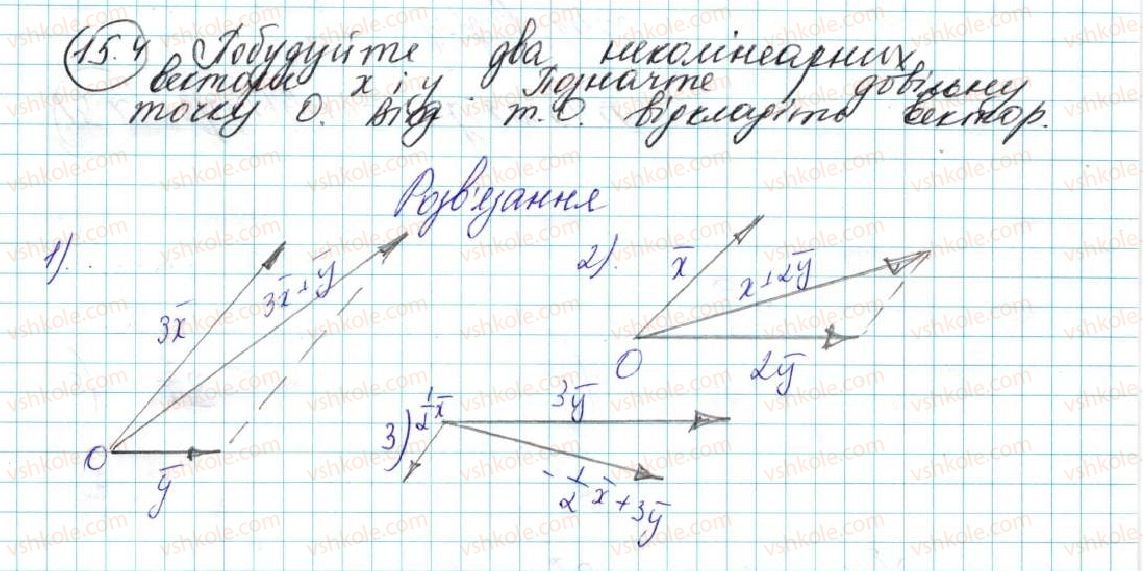 15.4 Побудуйте два неколінеарних
вектори x і y Позначте довільну
точку О. від т. О. відкладіть вектор.
Розв'язання
1).
3x̄
3x̄+ȳ
О
ȳ
2).
x̄
x+2ȳ
О
2ȳ
3)
1/2 x̄
3ȳ
-1/2 x̄+3ȳ
vshkole.com